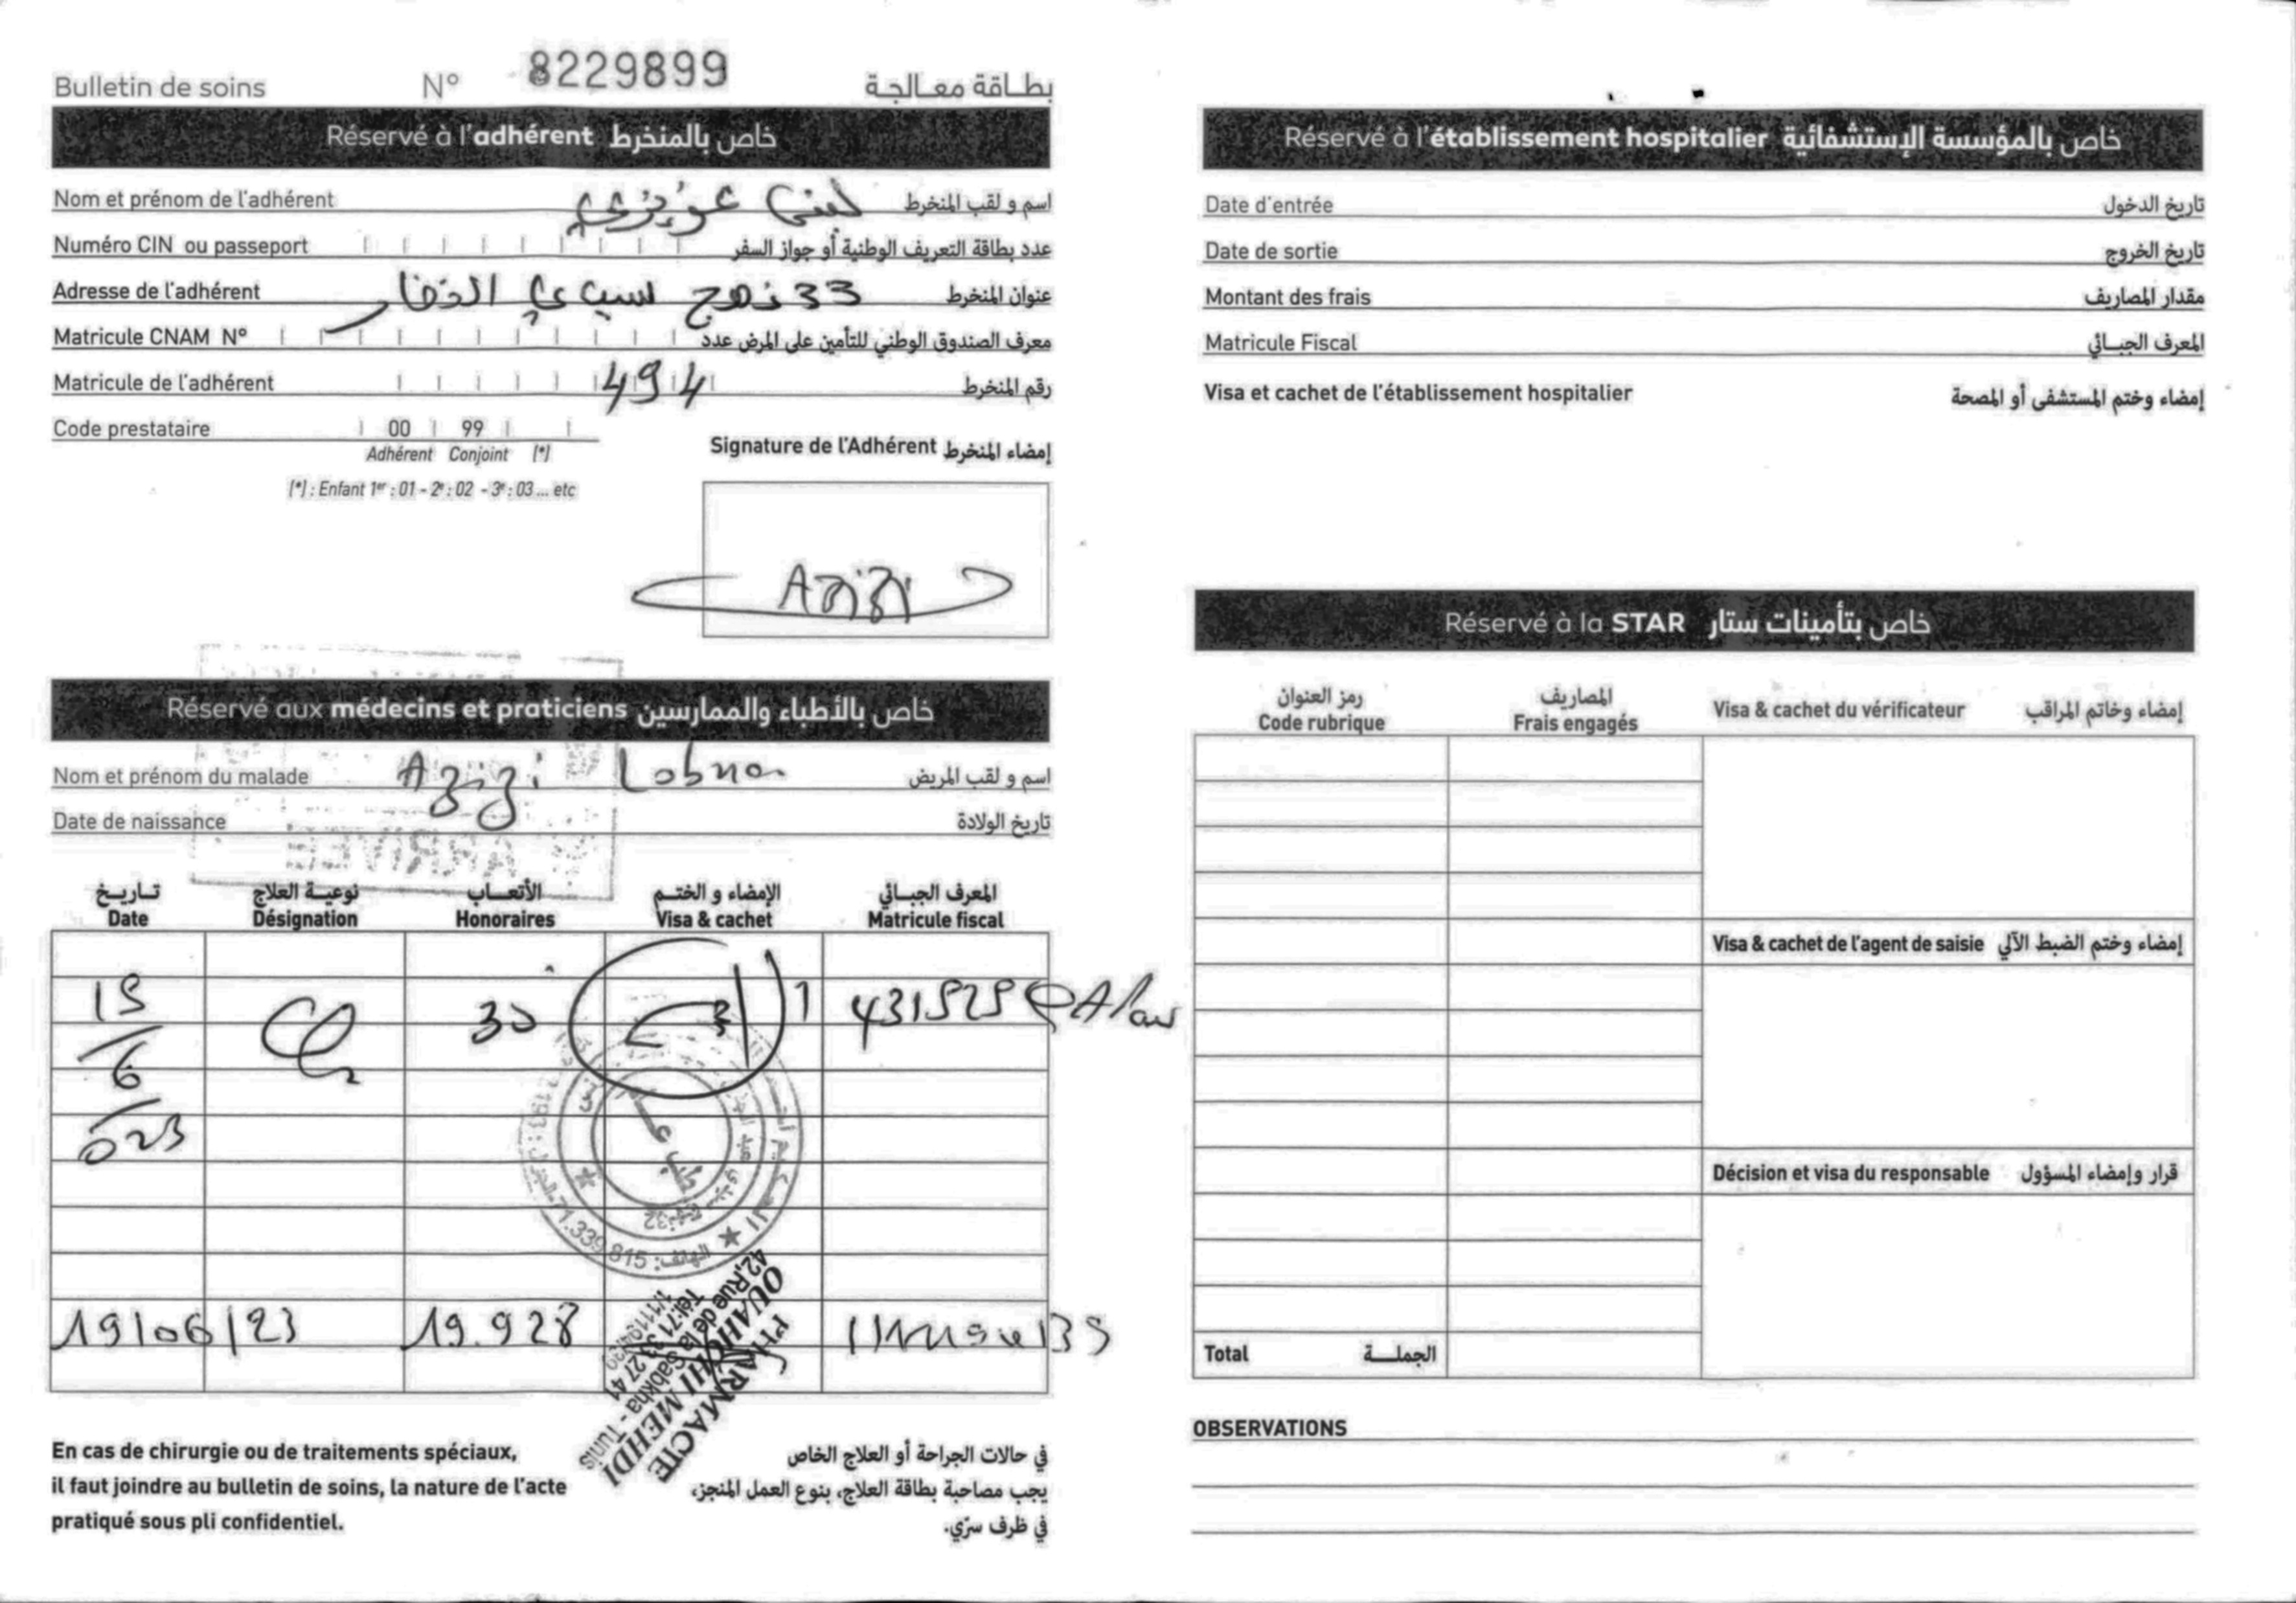 Bulletin de soins N° 8229899 بطاقة معالجة
Réservé à l'adhérent خاص بالمنخرط
Nom et prénom de l'adhérent لبنى عزيزي اسم و لقب المنخرط
Numéro CIN ou passeport عدد بطاقة التعريف الوطنية أو جواز السفر
Adresse de l'adhérent 33 نهج سيدي عنوان المنخرط
Matricule CNAM N° معرف الصندوق الوطني للتأمين على المرض عدد
Matricule de l'adhérent 494 رقم المنخرط
Code prestataire 00 99
Adhérent Conjoint (*)
(*) : Enfant 1er : 01 - 2e : 02 - 3e : 03 ... etc
Signature de l'Adhérent إمضاء المنخرط
Azizi
Réservé aux médecins et praticiens خاص بالأطباء والممارسين
Nom et prénom du malade Azizi Lobna اسم و لقب المريض
Date de naissance تاريخ الولادة
تاريخ نوعية العلاج الأتعاب الإمضاء و الختم المعرف الجبائي
Date Désignation Honoraires Visa & cachet Matricule fiscal
15 30 431525
6
023
الهاتف: 71.339.815
19/06/23 19.928
PHARMACIE
OUAHCHI MEHDI
42,Rue de la Sabkha - Tunis
Tél:71 33 27 41
En cas de chirurgie ou de traitements spéciaux,
il faut joindre au bulletin de soins, la nature de l'acte
pratiqué sous pli confidentiel.
في حالات الجراحة أو العلاج الخاص
يجب مصاحبة بطاقة العلاج، بنوع العمل المنجز،
في ظرف سرّي.
Réservé à l'établissement hospitalier خاص بالمؤسسة الإستشفائية
Date d'entrée تاريخ الدخول
Date de sortie تاريخ الخروج
Montant des frais مقدار المصاريف
Matricule Fiscal المعرف الجبائي
Visa et cachet de l'établissement hospitalier إمضاء وختم المستشفى أو المصحة
Réservé à la STAR خاص بتأمينات ستار
رمز العنوان المصاريف
Code rubrique Frais engagés Visa & cachet du vérificateur إمضاء وخاتم المراقب
Visa & cachet de l'agent de saisie إمضاء وختم الضبط الآلي
Décision et visa du responsable قرار وإمضاء المسؤول
Total الجملة
OBSERVATIONS